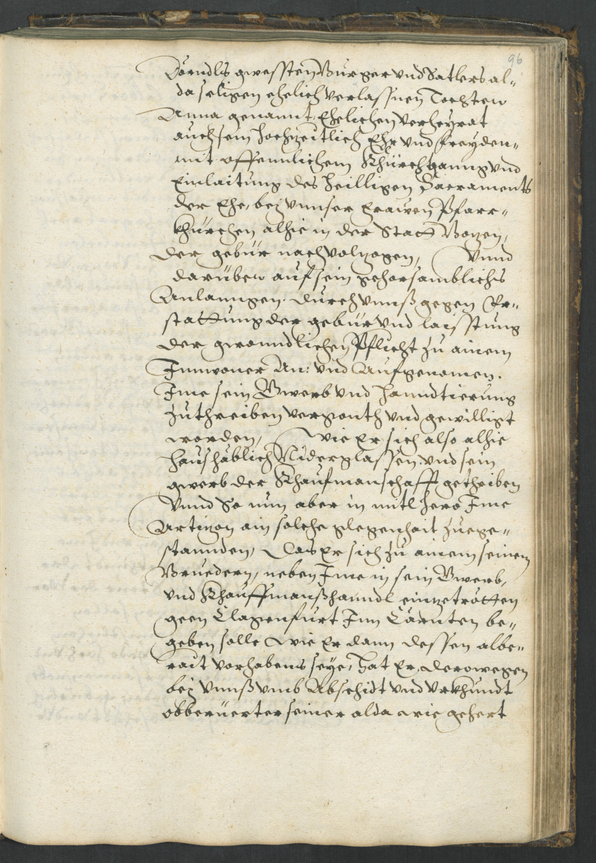 96
Dorndls gwessten Burger vnd Satlers al-
da seligen ehelich verlassnen Tochter
Anna genannt Ehelichen verheyrat
auch sein hochzeitlich Ehr vnd freyden-
mit offennlichem Khürchganng vnd
Einlaitung des heilligen Sacraments
der Ehe, bej vnnser Frawen Pfarr-
khürchen alhie in der Statt Bozen,
der gebür nach volzogen, Vnnd
darüber auf sein gehorsamblichs
Anlanngen durch vnnß gegen Er-
stattung der gebür vnd laisstung
der gwonndlichen Pflicht zu ainem
Innwoner An: vnd Aufgenomen.
Ime sein Gwerb vnd hanndtierung
zutreiben vergonth vnd gewilligt
worden, Wie Er sich also alhie
haushäblich Niderglassen vnd sein
gwerb der Khaufmanschafft getriben
Vnnd So nun aber in mitl Zeit Ime
Artizon ain solche glegenheit zuege-
stannden, Das Er sich zu ainem seinen
Bruedern, neben Ime in sein Gwerb,
vnd Khauffmanßhanndl einzetrotten
geen Clagenfurt Inn Cärnten be-
geben solle, Wie Er dann dessen albe-
rait vorhabens seye, hat Er derowegen
bej vnnß vmb Abschidt vnd Vrkhundt
obberüerter seiner alda wie gehert